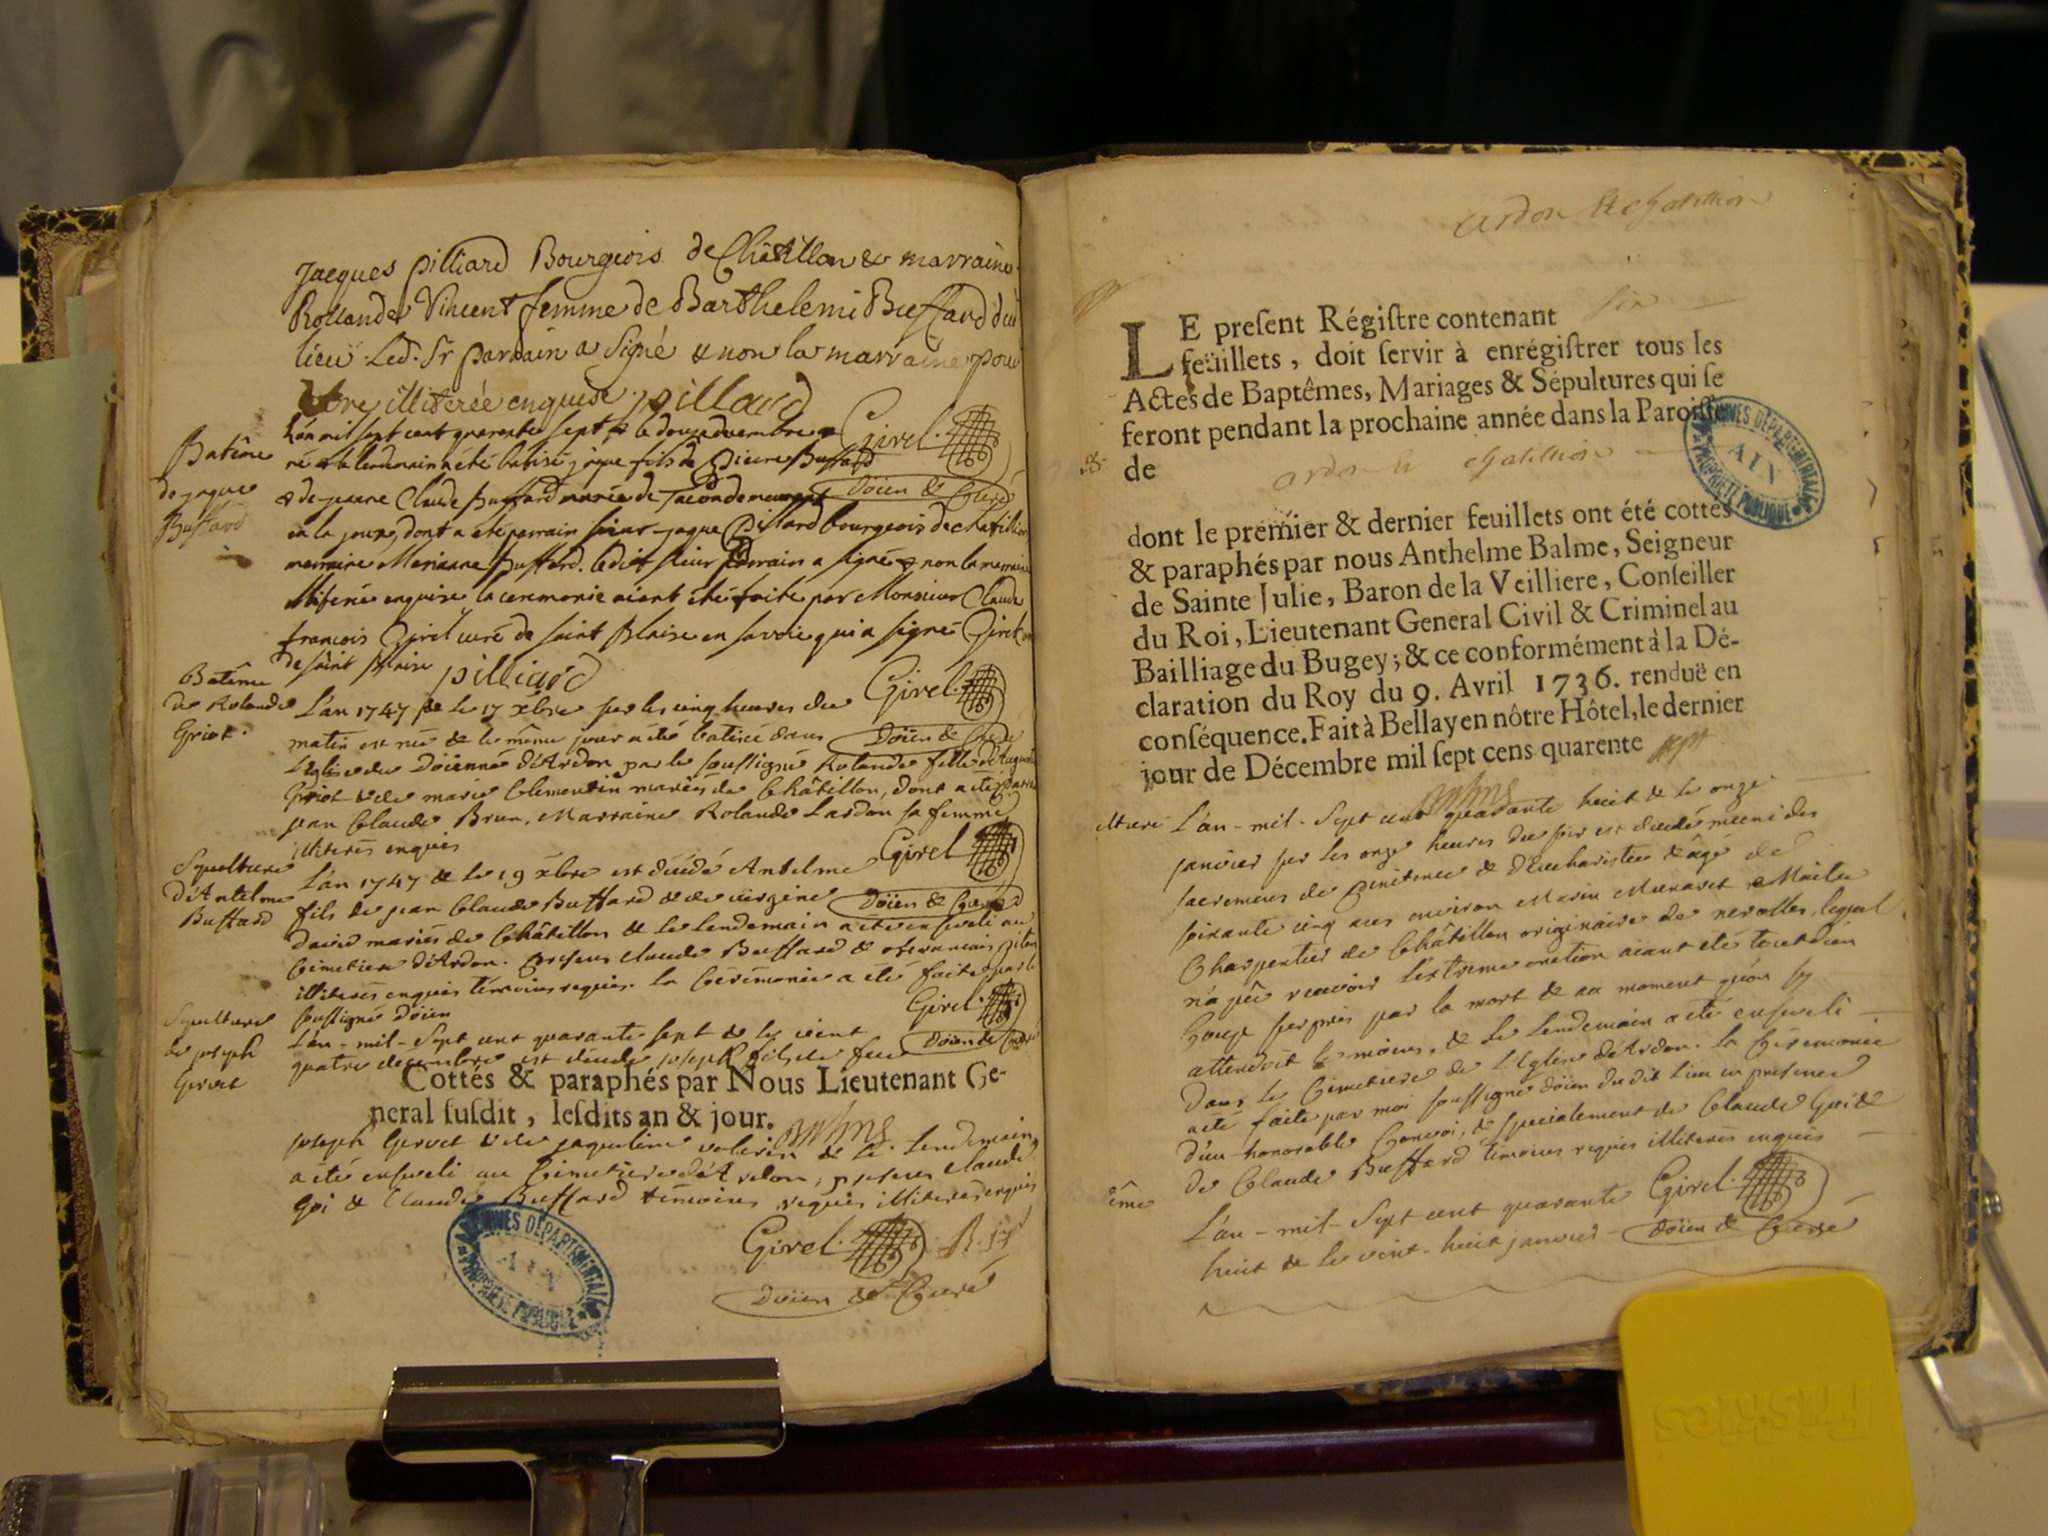 Jacques pilliard Bourgeois de Châtillon & marraine
Rollande Vincent femme de Barthelemi Buffard dud
lieu. Led. Sr parrain a signé & non la marraine pour
être illiterée enquise pilliard
Girel.
Doïen & Curé
Batême
de jaque
Buffard
l'an mil sept cent quarente sept & le douze decembre
né & le lendemain a été batisé jaque fils de Pierre Buffard
& de jeanne Claude Buffard mariés de
dont a été parrain sieur jaque Pillard bourgeois de chatillon
marraine Marianne Buffard. ledit sieur parrain a signé & non la marraine
illiterée enquise la ceremonie aiant été faite par Monsieur Claude
françois Girel curé de saint Blaise en savoie qui a signé Girel
de saint Blaise pilliard
Girel.
Doïen & Curé
Batême
de Rolande
Griot.
L'an 1747 & le 17 xbre sur les cinq heures du
matin est née & le même jour a été batisée dans
l'Eglise du Doienné d'Ardon par le soussigné Rolande fille d'August
Griot & de marie Clementin mariés de Châtillon, dont a été parrain
jean Claude Brun, Marraine Rolande Lardon sa femme
illiterés enquis
Girel
Doïen & Curé
Sepulture
d'Antelme
Buffard
L'an 1747 & le 19 xbre est decedé Antelme
fils de jean Claude Buffard & de
david mariés de Châtillon & le lendemain a été enseveli au
Cimetiere d'Ardon. presens Claude Buffard & françois
illiterés enquis témoins requis. la Cérémonie a été faite par le
soussigné doïen
Girel.
Doïen & Curé
Sepulture
de joseph
Gervet
L'an - mil - sept cent quarante sept & le vint
quatre decembre est decedé joseph fils de feu
Cottés & paraphés par Nous Lieutenant Ge-
neral susdit, lesdits an & jour.
joseph Gervet & de jaqueline & le lendemain
a été enseveli au Cimetiere d'Ardon, presens Claude
Goi & Claude Buffard témoins requis illiterés enquis
Girel.
Doïen & Curé
ARCHIVES DÉPARTEMENTALES
AIN
PROPRIÉTÉ PUBLIQUE
ardon et chatillion
LE present Régistre contenant six
feüillets, doit servir à enrégistrer tous les
Actes de Baptêmes, Mariages & Sépultures qui se
feront pendant la prochaine année dans la Paroisse
de ardon et chatillion
ARCHIVES DÉPARTEMENTALES
AIN
PROPRIÉTÉ PUBLIQUE
dont le premier & dernier feuillets ont été cottés
& paraphés par nous Anthelme Balme, Seigneur
de Sainte Julie, Baron de la Veilliere, Conseiller
du Roi, Lieutenant General Civil & Criminel au
Bailliage du Bugey; & ce conformément à la Dé-
claration du Roy du 9. Avril 1736. renduë en
conséquence. Fait à Bellay en nôtre Hôtel, le dernier
jour de Décembre mil sept cens quarente sept
L'an - mil - sept cent quarante huit & le onze
janvier sur les onze heures du soir est decedé muni des
sacremens de penitence & d'Eucharistie & âgé de
soixante cinq ans environ Marin Maitre
Charpentier de Châtillon originaire de nerolles, lequel
n'a pû recevoir l'extreme onction aiant été tout d'un
Coup surpris par la mort & au moment qu'on s'y
attendoit le moins, & le lendemain a été enseveli
dans le Cimetiere de l'Eglise d'Ardon. la Cérémonie
a été faite par moi soussigné doïen du dit lieu en presence
d'un honorable Convoi, & specialement de Claude Goi &
de Claude Buffard témoins requis illiterés enquis
Girel.
Doïen & Curé
L'an - mil - sept cent quarante
huit & le vint - huit janvier
Friskies